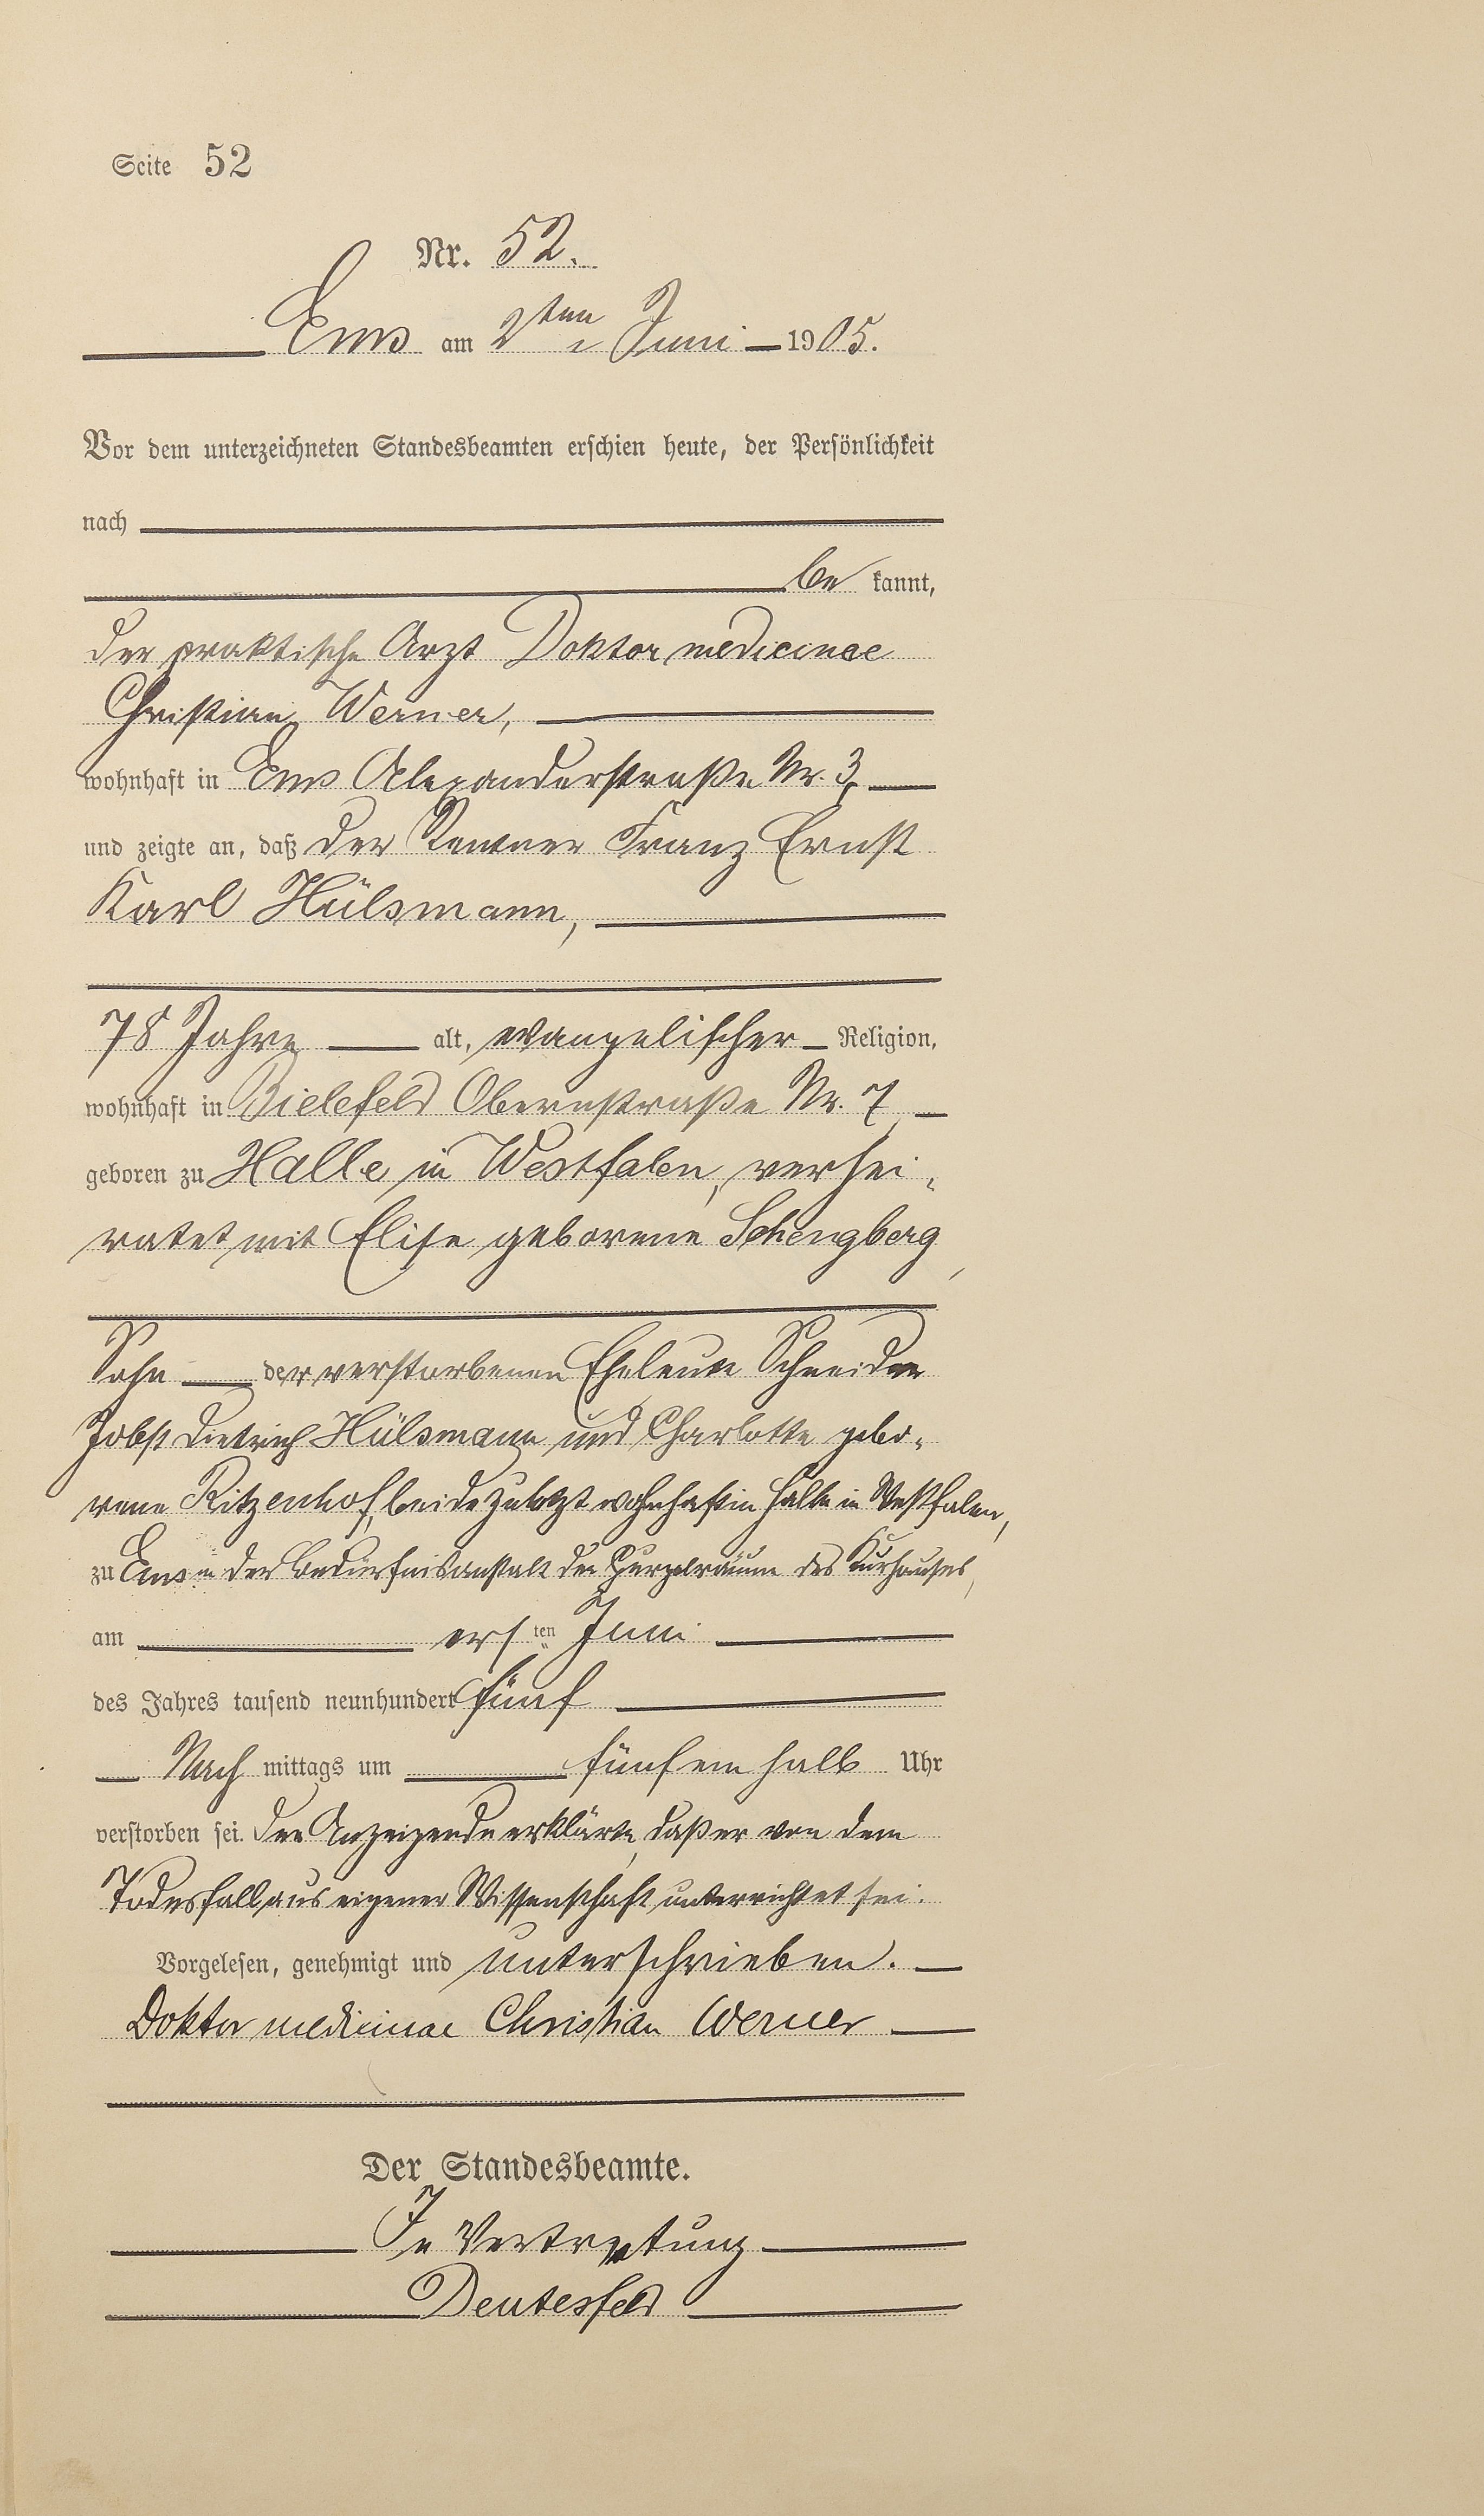 Seite 52
Nr. 52.
Ems am 2ten Juni 1905.
Vor dem unterzeichneten Standesbeamten erschien heute, der Persönlichkeit
nach
be kannt,
der praktische Arzt Doktor medicinae
Christian Werner,
wohnhaft in Ems Alexanderstraße Nr. 3,
und zeigte an, daß der Rentner Franz Ernst
Karl Hülsmann,
78 Jahre alt, evangelischer Religion,
wohnhaft in Bielefeld Obernstraße Nr. 7,
geboren zu Halle in Westfalen, verhei-
ratet mit Elise geborene Schengberg,
Sohn der verstorbenen Eheleute Schneider
Jobst Dietrich Hülsmann und Charlotte gebo-
rene Ritzenhof, beide zuletzt wohnhaft in Halle in Westfalen,
zu Ems in der Bedürfnisanstalt der des Kurhauses,
am ersten Juni
des Jahres tausend neunhundert fünf
Nach mittags um fünf ein halb Uhr
verstorben sei. Der Anzeigende erklärte, daß er von dem
Todesfall aus eigener Wissenschaft unterrichtet sei.
Vorgelesen, genehmigt und unterschrieben.
Doktor medicinae Christian Werner
Der Standesbeamte.
In Vertretung
Deutesfeld